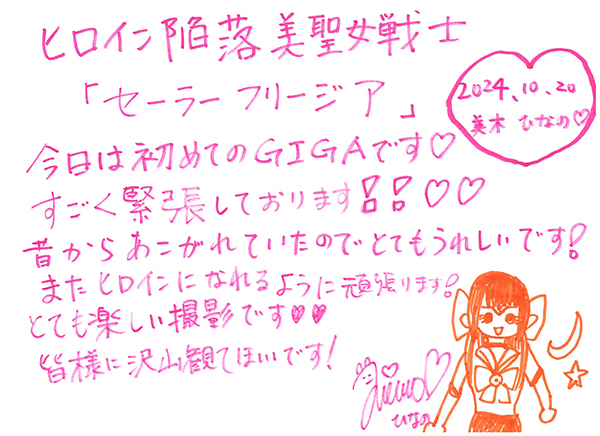 ヒロイン陥落美聖女戦士
「セーラーフリージア」
2024.10.20
美木 ひなの♡
今日は初めてのGIGAです♡
すごく緊張しております!!♡♡
昔からあこがれていたのでとてもうれしいです!
またヒロインになれるように頑張ります!
とても楽しい撮影です♥♥
皆様に沢山観てほいです!
ひなの